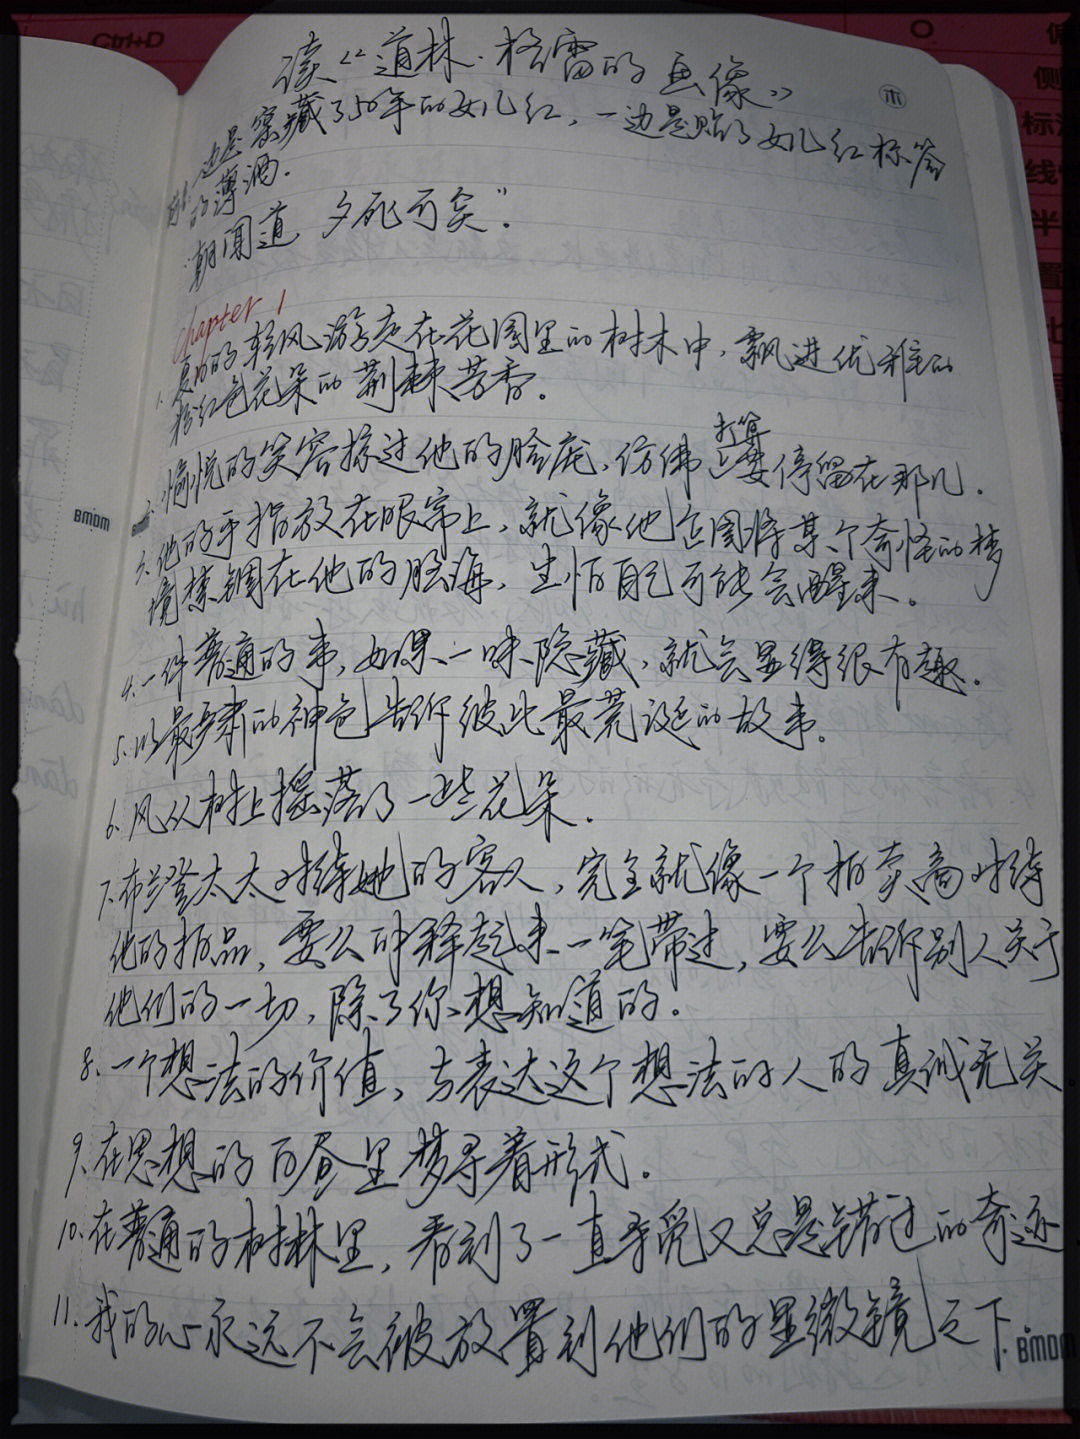 Ctrl+D
读《道林·格雷的画像》
木
一边是窖藏了50年的女儿红，一边是贴了女儿红标签
的薄酒.
"朝闻道，夕死可矣".
Chapter 1
1. 夏日的轻风游走在花园里的树木中，飘进优雅的
粉红色花朵的荆棘芳香。
打算
2. 愉悦的笑容掠过他的脸庞，仿佛要停留在那儿.
3. 他的手指放在眼帘上，就像他企图将某个奇怪的梦
境禁锢在他的脑海，生怕自己可能会醒来。
4. 一件普通的事，如果一味隐藏，就会显得很有趣.
5. 以最严肃的神色告诉彼此最荒诞的故事。
6. 风从树上摇落了一些花朵.
7. 布兰登太太对待她的客人，完全就像一个拍卖商对待
他的拍品，要么解释起来一笔带过，要么告诉别人关于
他们的一切，除了你想知道的.
8. 一个想法的价值，与表达这个想法的人的真诚无关.
9. 在思想的白昼里梦寻着形式.
10. 在普通的树林里，看到了一直寻觅又总是错过的奇迹
11. 我的心永远不会被放置到他们的显微镜之下.
BMDM
BMDM